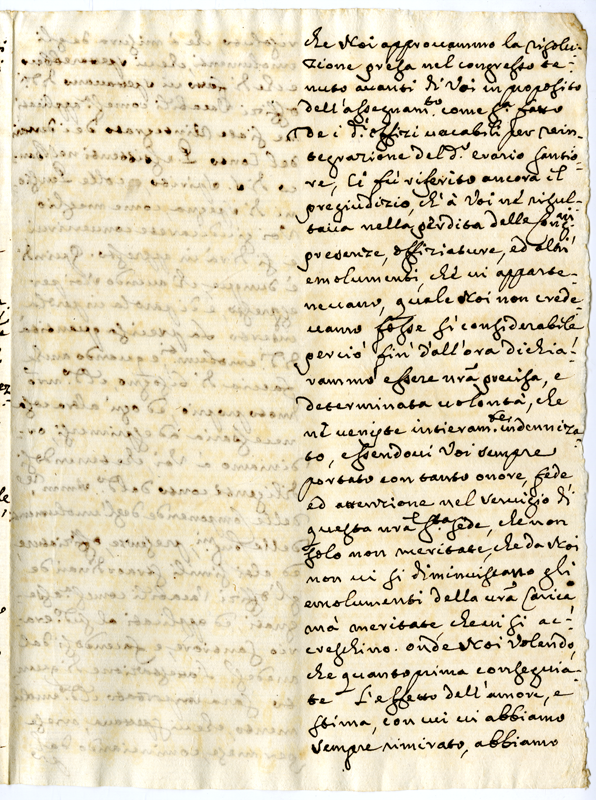 che Noi approvammo la risolu-
zione presa nel congresso te-
nuto avanti di Voi in proposito
dell'assegnam.to come s.a fatto
de i d.i offizi vacabili per rein-
tegrazione del d.o erario Santio-
re, ci fù riferito ancora il
pregiudizio, ch'à Voi ne risul-
tava nella perdita delle
presenze, offiziature, ed altri
emolumenti che vi apparte-
nevano, quale Noi non crede-
vamo fosse si considerabile
perciò fin d'all'ora dichia-
rammo essere nrã precisa, e
determinata volontà, che
ne veniste intieram.te indenniza-
to, essendovi Voi sempre
portato con tanto onore, fede
ed attenzione nel servigio di
questa nrã S.ta Sede, che non
solo non meritate, che da Noi
non vi si diminuiscano gli
emolumenti della vrã Carica
mà meritate che vi si ac-
creschino. onde Noi volendo,
che quanto prima conseguia-
te l'effetto dell'amore, e
stima, con cui vi abbiamo
sempre rimirato, abbiamo